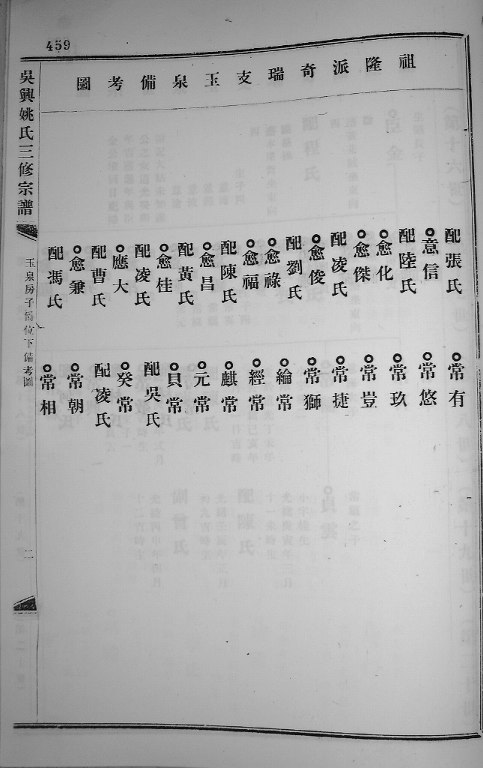 459
祖隆派奇瑞支玉泉備考圖
吳興姚氏三修宗譜
玉泉房子嵩位下備考圖
二
配張氏
意信
配陸氏
愈化
愈傑
配凌氏
愈俊
配劉氏
愈祿
愈福
配陳氏
愈昌
配黃氏
愈桂
配凌氏
應大
配曹氏
愈兼
配馮氏
常有
常悠
常玖
常豈
常捷
常獅
綸常
經常
麒常
元常
貝常
配吳氏
癸常
配凌氏
常朝
常相